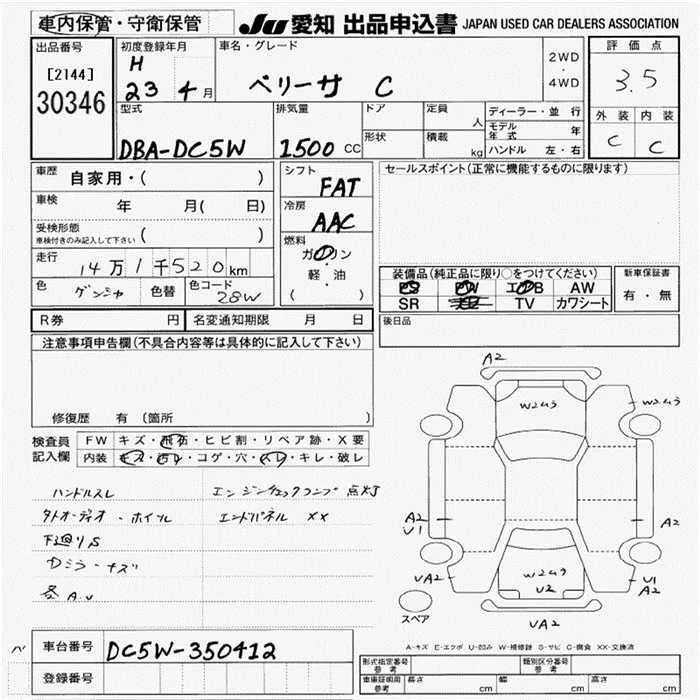 車内保管・守衛保管
JU 愛知 出品申込書 JAPAN USED CAR DEALERS ASSOCIATION
出品番号
[2144]
30346
初度登録年月
H
23 4 月
車名・グレード
ベリーサ C
2WD
・
4WD
評価点
3.5
外装 内装
C C
型式
DBA-DC5W
排気量
1500 CC
ドア
形状
定員
人
積載
kg
ディーラー・並 行
モデル年式 年
ハンドル 左・右
車歴 自家用・( )
車検 年 月( 日)
受検形態
車検付きのみ記入して下さい ( )
走行 14万1千520km
色 ゲンシャ 色替 色コード 28W
シフト
FAT
冷房
AAC
燃料
ガソリン
軽・油
( )
セールスポイント(正常に機能するものに限ります)
装備品(純正品に限り○をつけてください)
PS PW エアB AW
SR TV カワシート
新車保証書
有・無
R券 円 名変通知期限 月 日
後日品
注意事項申告欄(不具合内容等は具体的に記入して下さい)
修復歴 有 (箇所 )
検査員記入欄
FW キズ・飛石・ヒビ割・リペア跡・X要
内装 キズ・汚レ・コゲ・穴・スレ・キレ・破レ
ハンドルスレ エンジンチェックランプ 点灯
外オーディオ・ホイル エンドパネル XX
下廻りS
Dミラーキズ
各A.U
A2
W2ムラ
W2ムラ
A2
U1
A2
UA2
W2ムラ
U2
U1
A2
UA2
スペア
A-キズ E-エクボ U-凹み W-補修跡 S-サビ C-腐食 XX-交換済
車台番号 DC5W-350412
登録番号
形式指定番号
参考
類別区分番号
参考
車庫証明用
参考
長さ cm 幅 cm 高さ cm